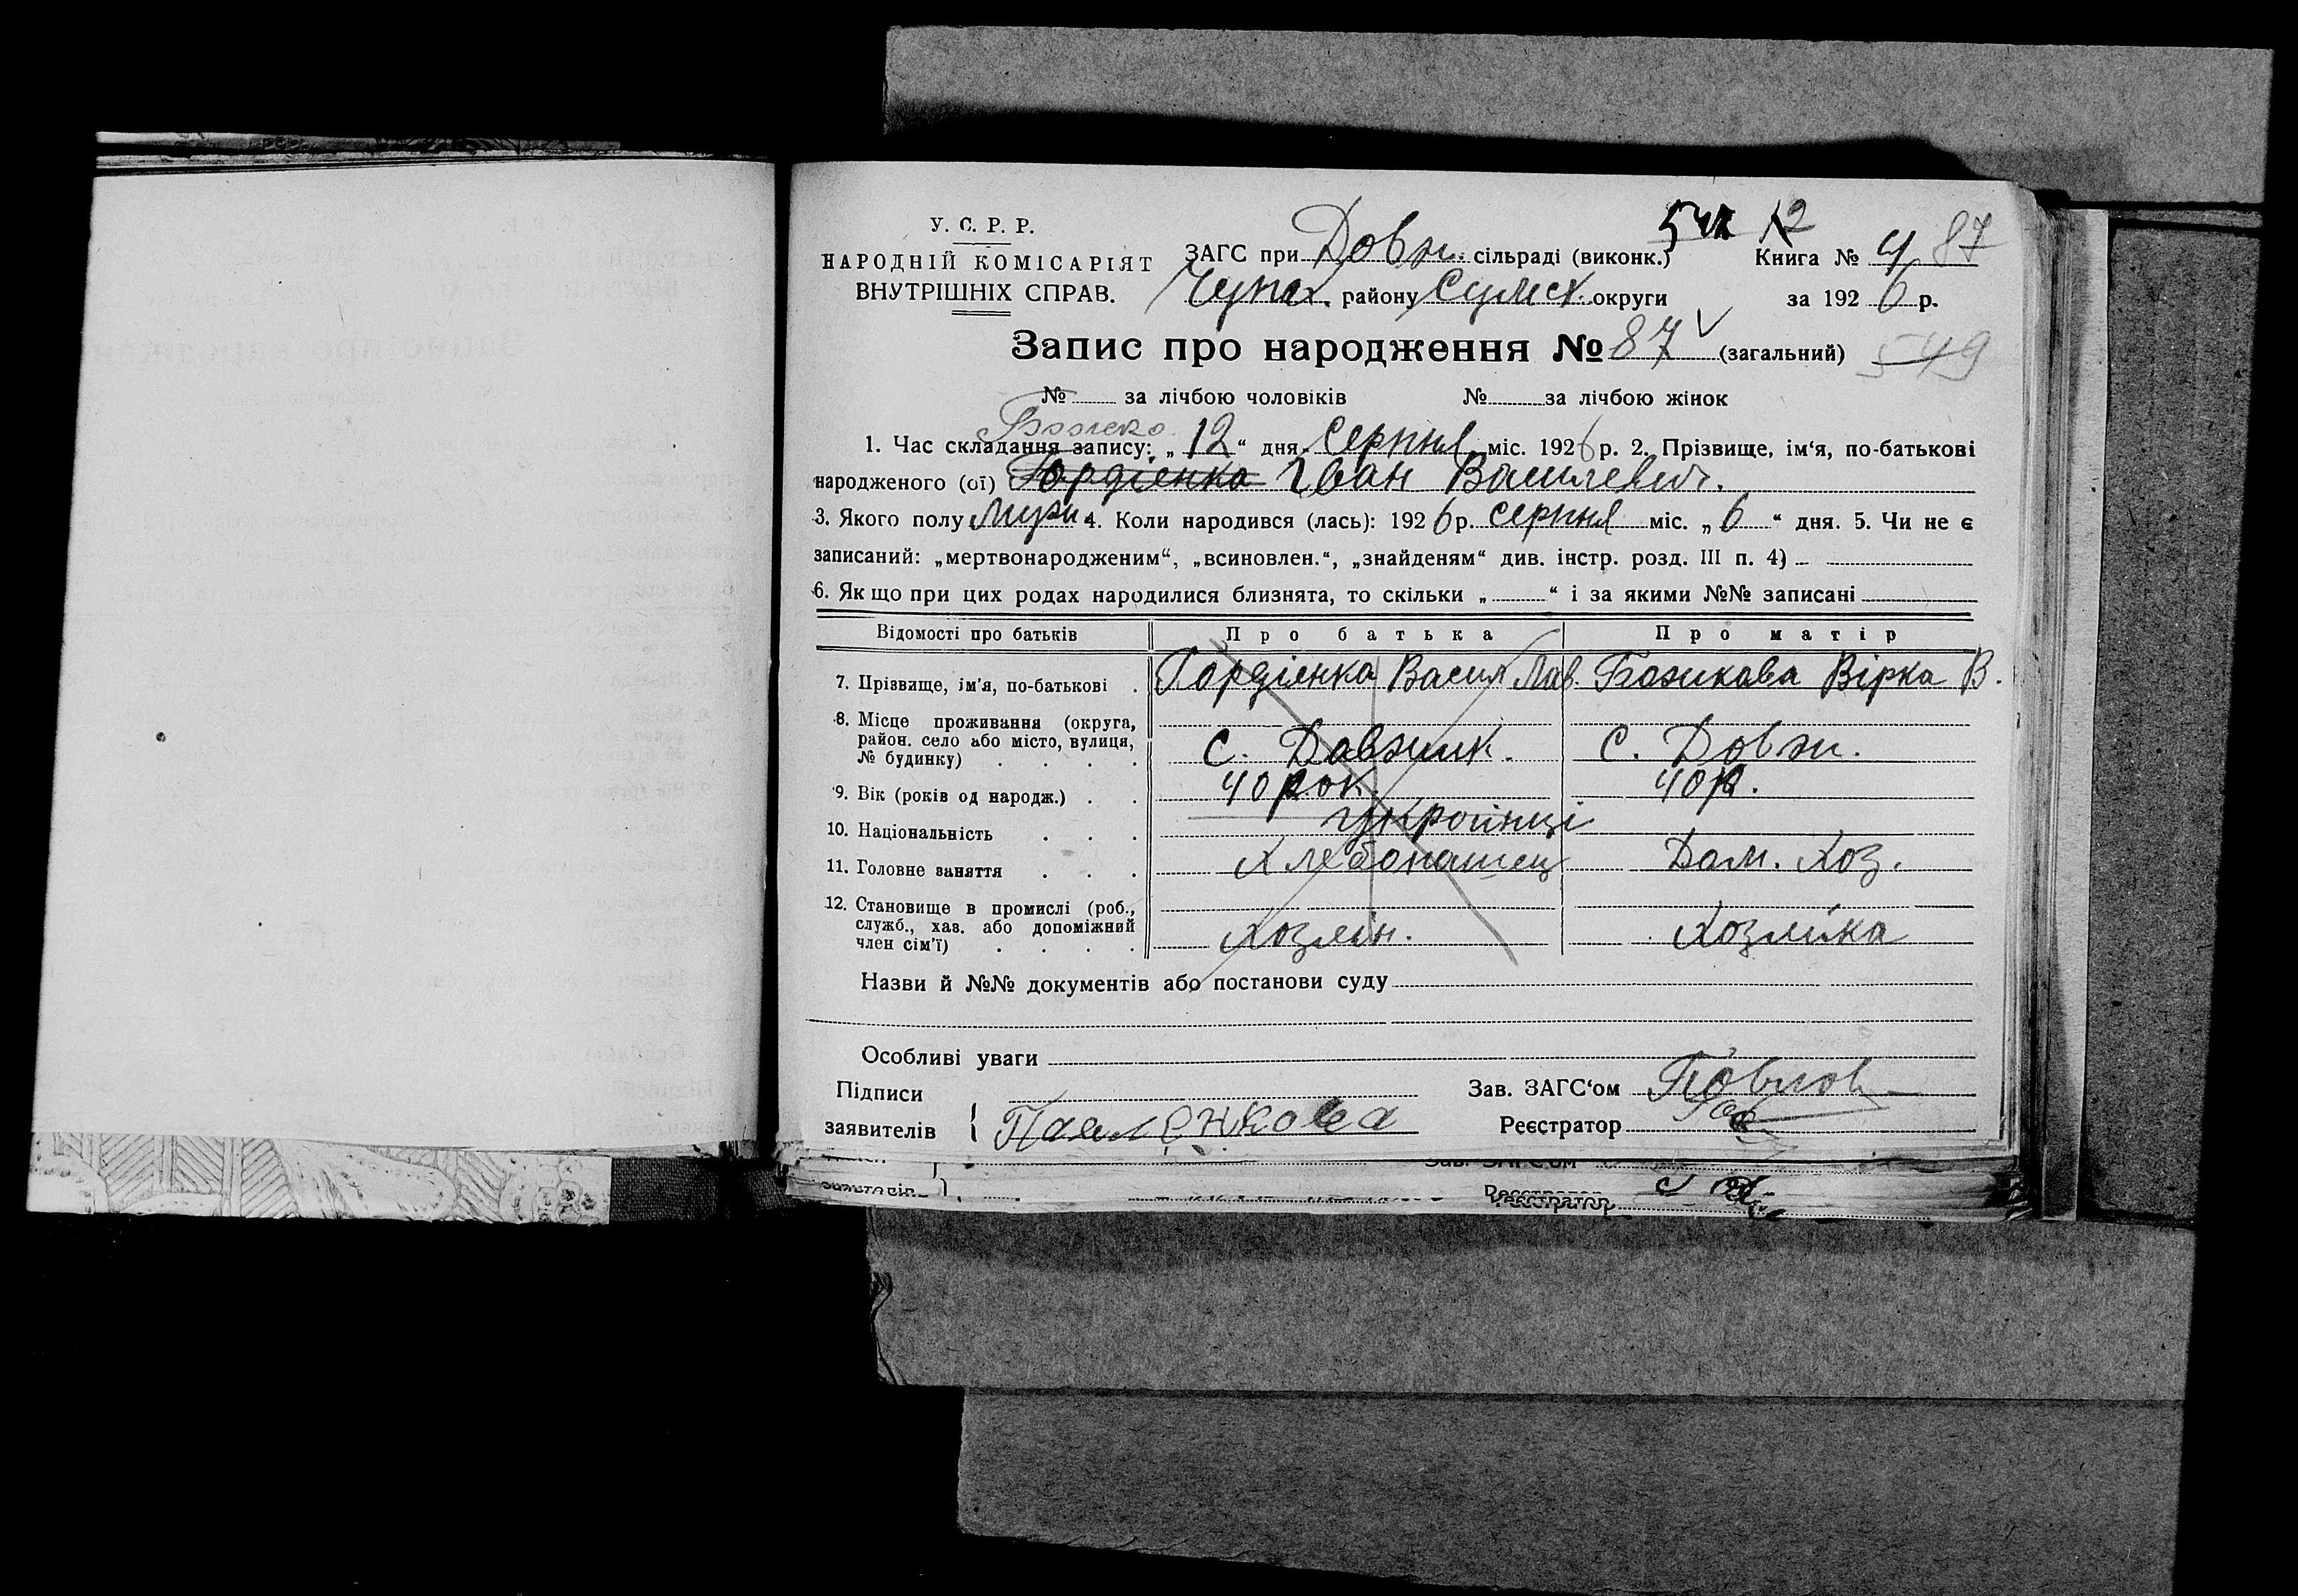 У. С. Р. Р.
НАРОДНІЙ КОМІСАРІЯТ
ВНУТРІШНІХ СПРАВ.
12
ЗАГС при Довж. сільраді (виконк.) Книга № 4 87
Чупах. району Сумск. округи за 1926 р.
Запис про народження № 87 (загальний) 549
№ за лічбою чоловіків № за лічбою жінок
1. Час складання запису: „12“ дня Серпня міс. 1926 р. 2. Прізвище, ім‘я, по-батькові
народженого (ої) Гордіенка Іван Василевич.
3. Якого полу Мужи 4. Коли народився (лась): 1926 р. Серпня міс. „6“ дня. 5. Чи не є
записаний: „мертвонародженим“, „всиновлен.“, „знайденям“ див. інстр. розд. III п. 4)
6. Якщо при цих родах народилися близнята, то скільки „ “ і за якими №№ записані
Відомості про батьків Про батька Про матір
7. Прізвище, ім’я, по-батькові . Гордіенка Васил Лав. Божикава Вірка В.
8. Місце проживання (округа,
район. село або місто, вулиця,
№ будинку) . . . . С. Давжик. С. Довж.
9. Вік (років од народж.) . . 40 рок. 40 р.
10. Національність . . . українці
11. Головне заняття . . . Хлебопашец Дом. Хоз.
12. Становище в промислі (роб.,
служб., хаз. або допоміжний
член сім’ї) . . . . Хозяін. Хозяйка
Назви й №№ документів або постанови суду
Особливі уваги
Підписи Зав. ЗАГС‘ом Повлов
заявителів { Павленкова Реєстратор
Зав. ЗАГС‘ом
заявителів Реєстратор
Реєстратор